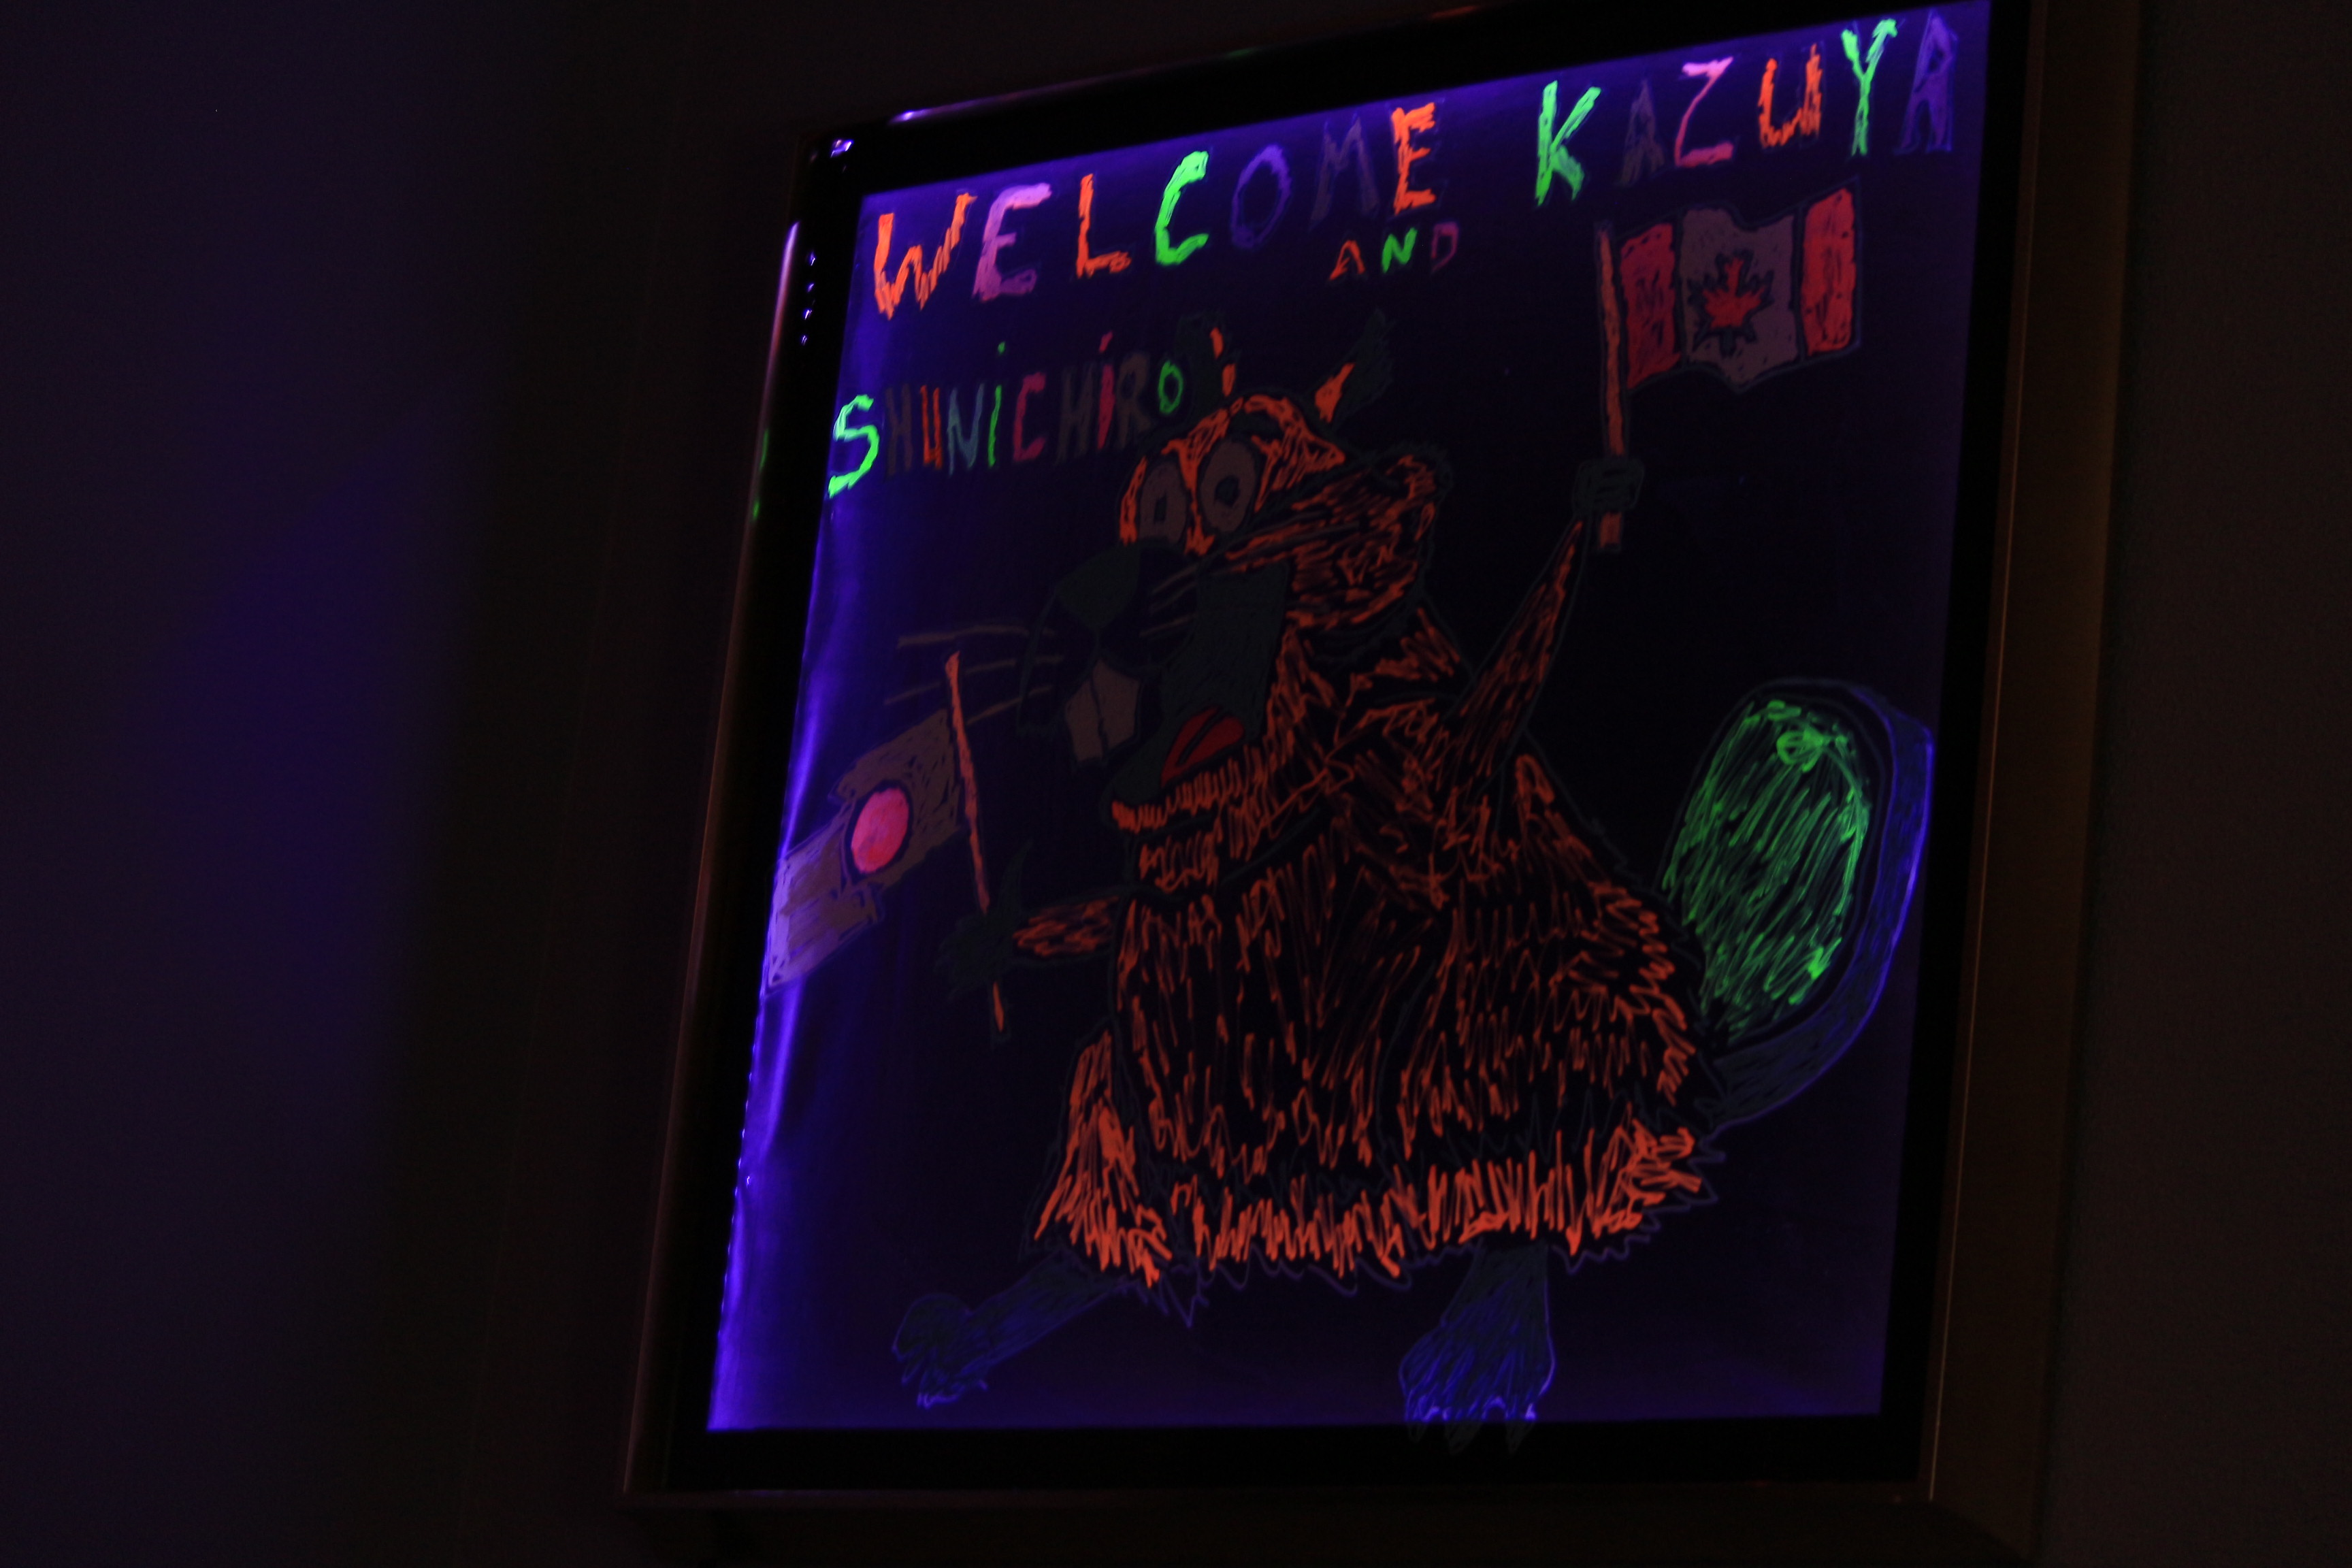 WELCOME KAZUYA
AND
SHUNiCHiRO